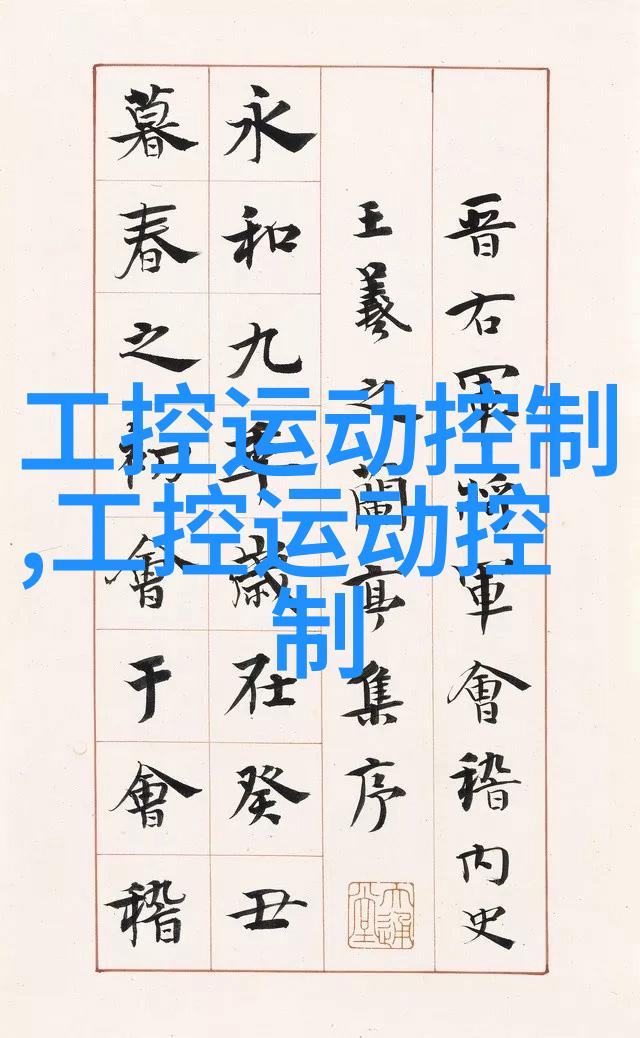 晋右軍将軍會稽内史
王羲之蘭亭集序
永和九年歲在癸丑
暮春之初會于會稽
工控运动控制
,工控运动控
制